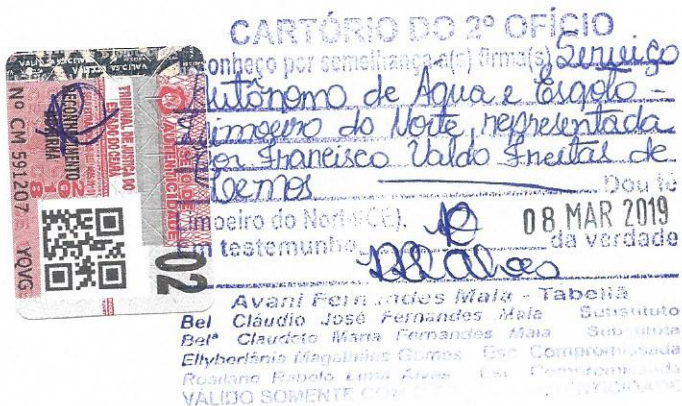 CARTÓRIO DO 2º OFÍCIO
conheço por semelhança a(s) firma(s) Serviço
Autônomo de Água e Esgoto -
Limoeiro do Norte, representada
por Francisco Valdo Freitas de
Lemos Dou fé
Limoeiro do Norte(CE). 08 MAR 2019
Em testemunho da verdade
Avani Fernandes Maia - Tabeliã
Bel Cláudio José Fernandes Maia Substituto
Belª Claudete Maria Fernandes Maia Substituta
Ellyberlânia Magalhães Gomes Esc Compromissada
Rosilano Rapolo Lima Alves Esc Compromissada
VALIDO SOMENTE COM AUTENTICIDADE
TRIBUNAL DE JUSTIÇA DO
ESTADO DO CEARÁ
RECONHECIMENTO
DE FIRMA
SELO DE
AUTENTICIDADE
2018
Nº CM 591207 YQVG
02